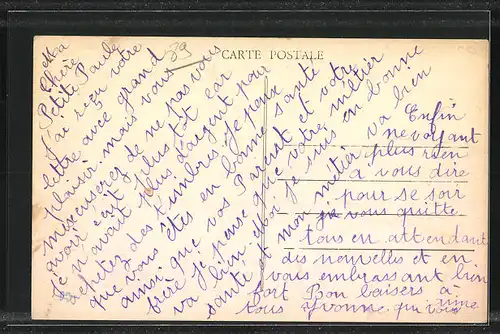 CARTE POSTALE
39
Ma
Chère
Petite Paule
J'ai reçu votre
lettre avec grand
plaisir mais vous
m'excuserez de ne pas vous
avoir écrit plus tôt car
je n'avait plus d'argent pour
achetez des timbres. je peux
que vous êtes en bonne santé
ainsi que vos Parent et votre
frère je pense que votre métier
va bien. moi je suis en bonne
santé et mon métier va bien
Enfin
ne voyant
plus rien
a vous dire
pour se soir
je vous quitte
tous en attendant
des nouvelles et en
vous embrassant bien
fort Bon baisers a
tous Yvonne qui vous
aime